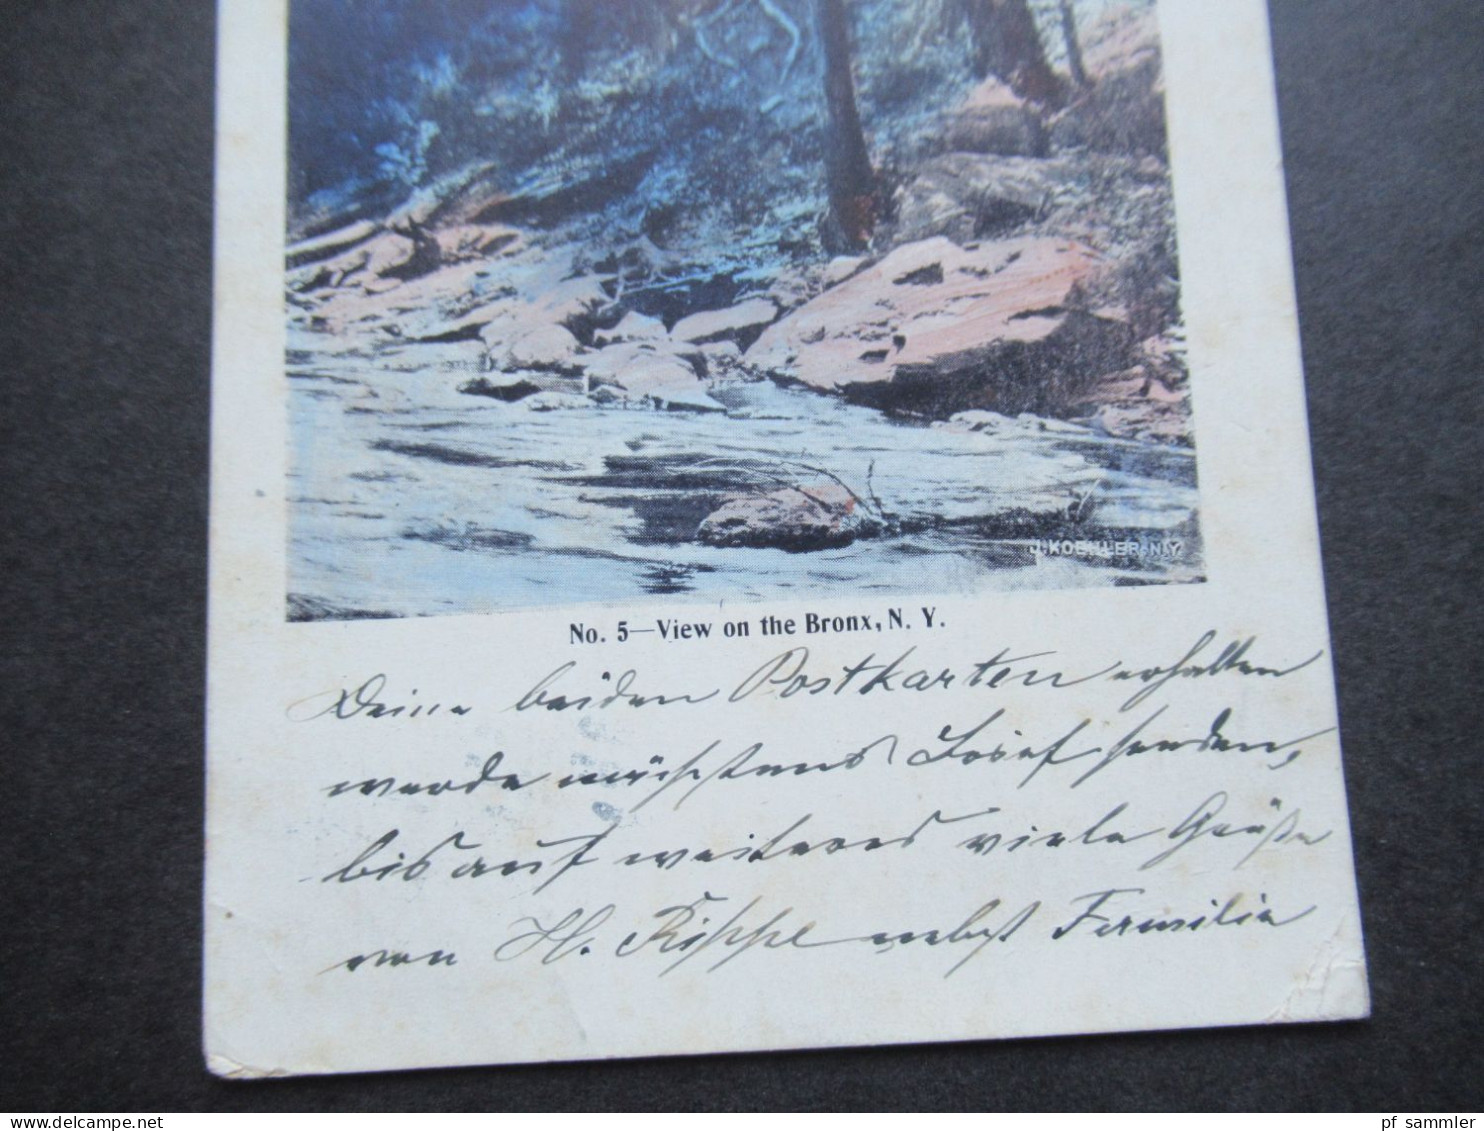 J. KOEHLER. N.Y.
No. 5—View on the Bronx, N. Y.
Deine beiden Postkarten erhalten
werde nächstens Josef senden,
bis auf weiteres viele Grüße
von H. nebst Familie
pf_sammler
www.delcampe.net